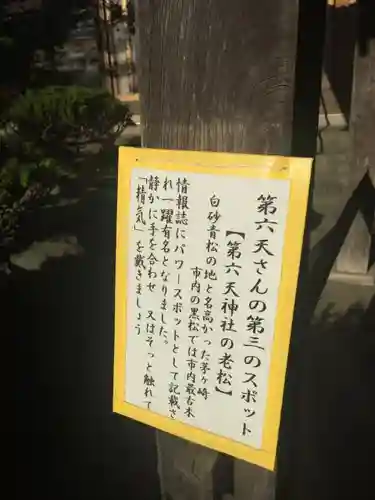 第六天さんの第三のスポット
【第六天神社の老松】
白砂青松の地と名高かった茅ヶ崎
市内の黒松では市内最古木
情報誌にパワースポットとして記載さ
れ一躍有名となりました。
静かに手を合わせ 又はそっと触れて
「精気」を戴きましょう